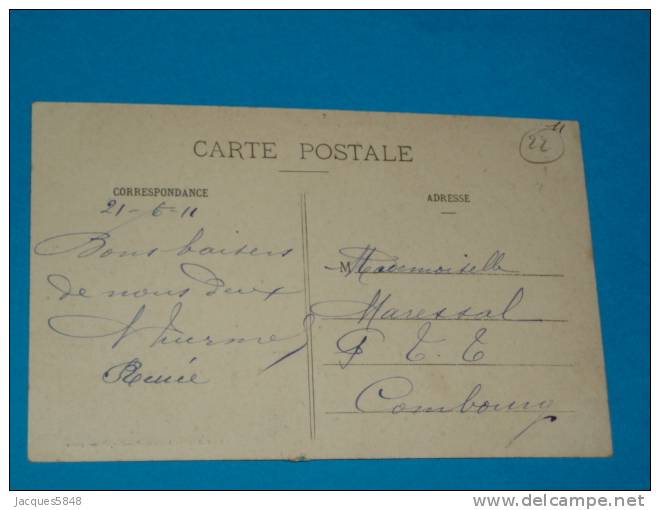 22
CARTE POSTALE
CORRESPONDANCE
21-6-11
Bons baisers
de nous deux
Renée
ADRESSE
M Mademoiselle
Maressal
P T. T
Combourg
Jacques5848
delcampe.net